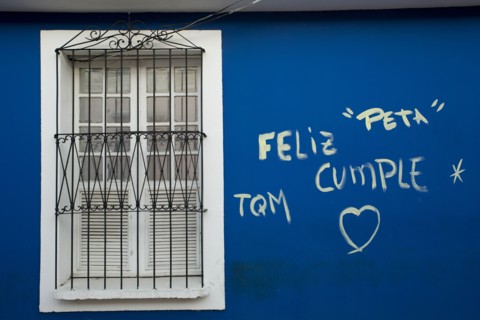 "PETA"
FELiz
CUMPLE *
TQM ♡